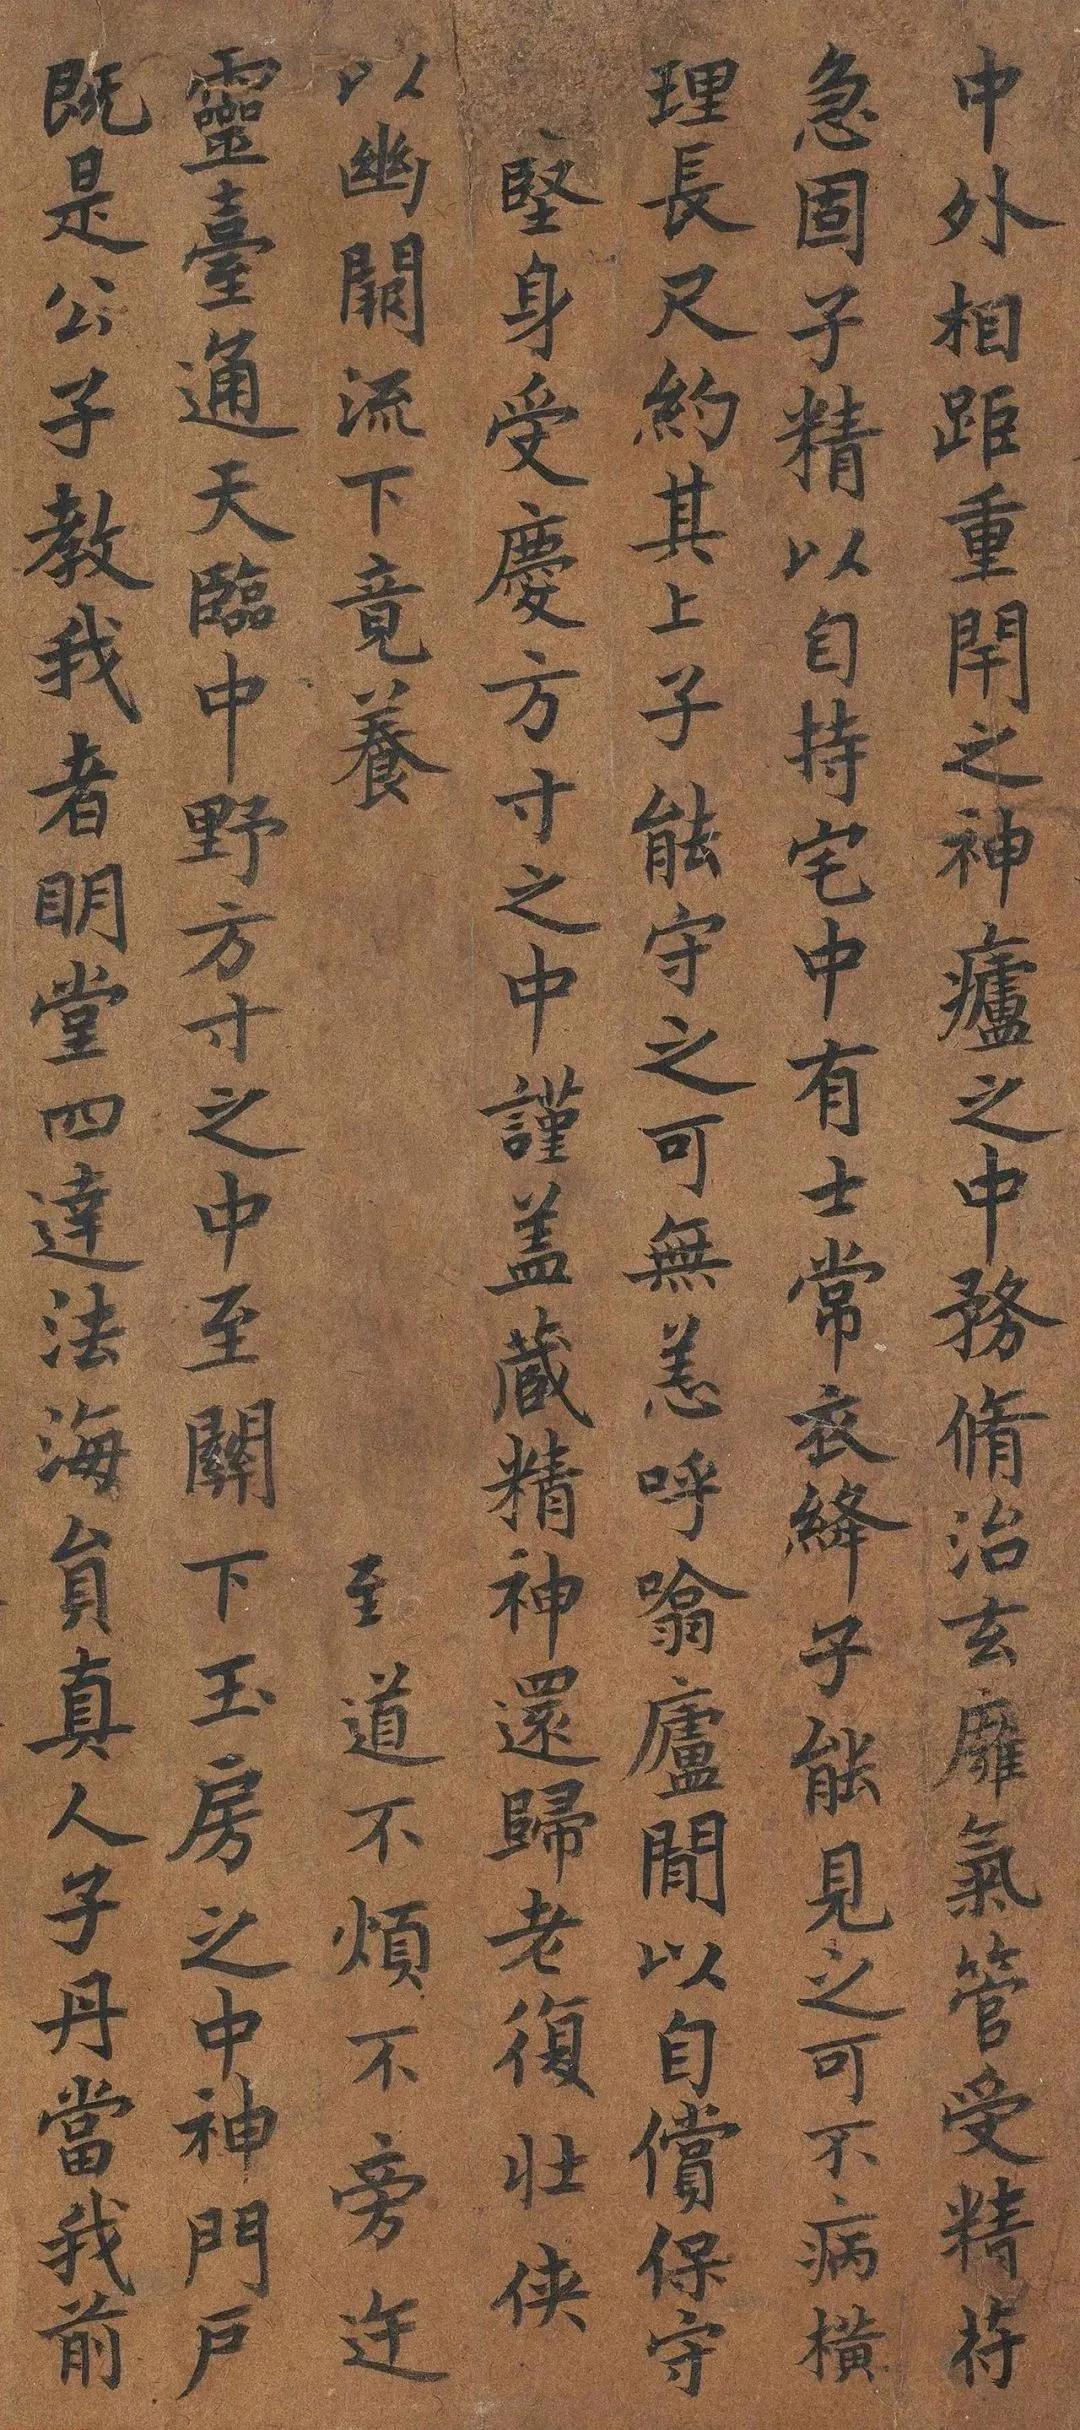 中外相距重閇之神廬之中務脩治玄廱氣管受精苻
急固子精以自持宅中有士常衣絳子能見之可不病橫
理長尺約其上子能守之可無恙呼噏廬間以自償保守
堅身受慶方寸之中謹盖藏精神還歸老復壯俠
以幽闕流下竟養 至道不煩不旁迕
靈臺通天臨中野方寸之中至關下玉房之中神門戶
既是公子教我者明堂四達法海員真人子丹當我前